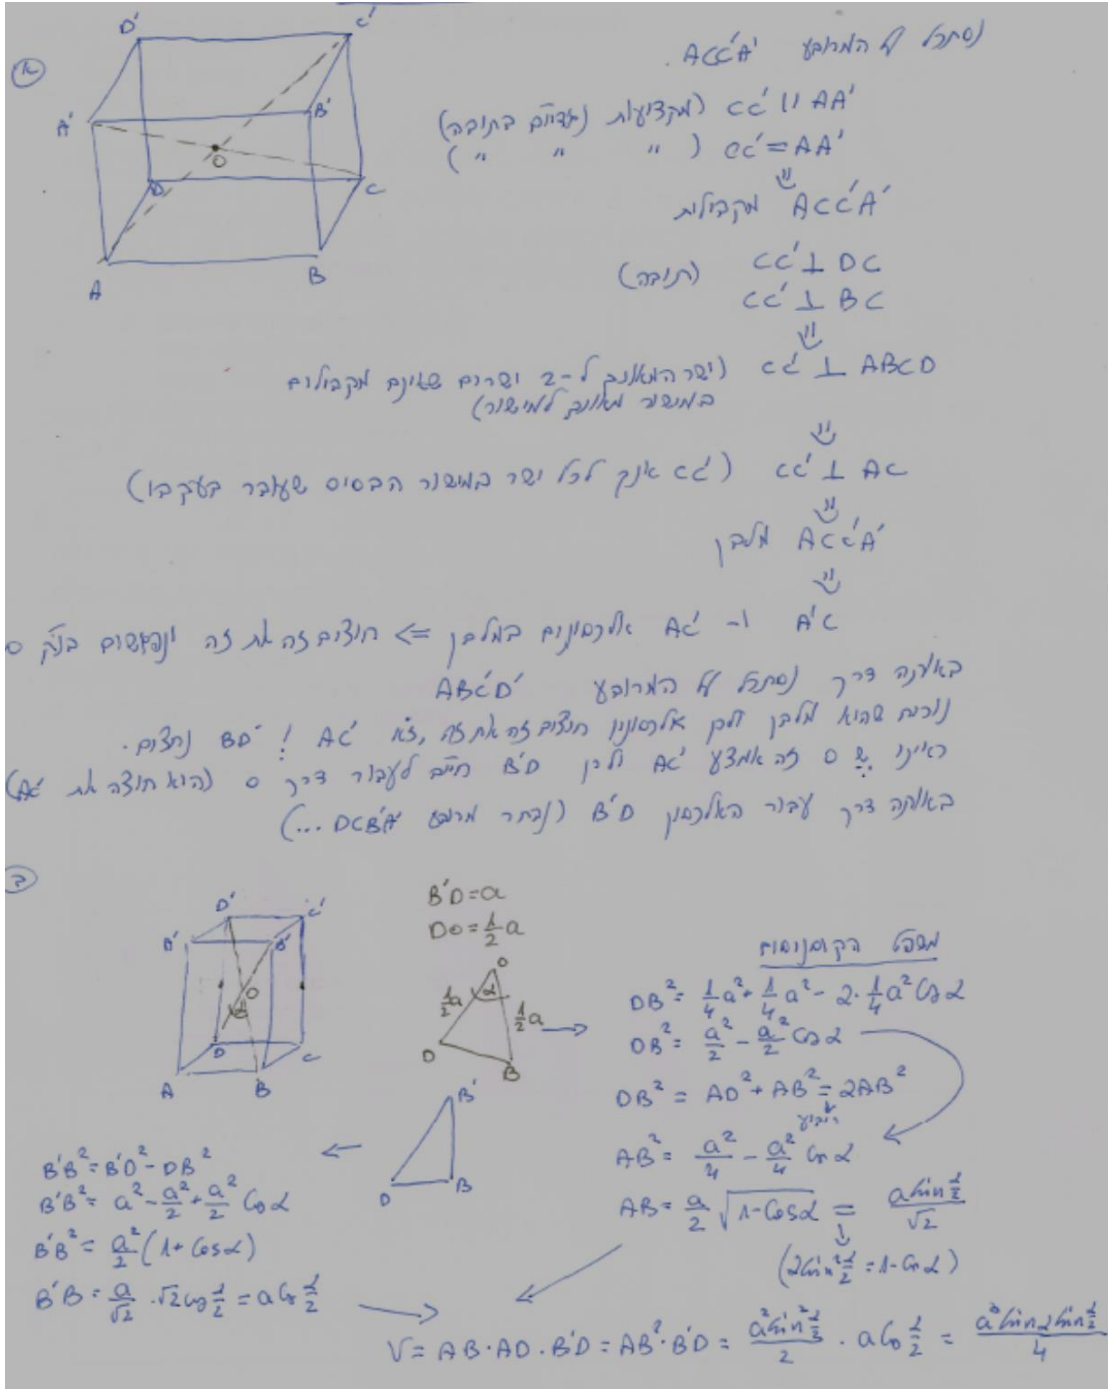 א
D'
C'
A'
B'
O
D
C
A
B
נסתכל על המרובע ACC'A'.
CC' || AA' (מקצועות נגדיים בתיבה)
CC' = AA' ( " " " )
⇓
ACC'A' מקבילית
CC' ⊥ DC (תיבה)
CC' ⊥ BC
⇓
CC' ⊥ ABCD (ישר המאונך ל-2 ישרים שאינם מקבילים
במישור מאונך למישור)
⇓
CC' ⊥ AC (CC' אנך לכל ישר במישור הבסיס שעובר בעקבו)
⇓
ACC'A' מלבן
⇓
A'C ו- AC' אלכסונים במלבן => חוצים זה את זה ונפגשים בנק' O
באותה דרך נסתכל על המרובע ABC'D'
נוכיח שהוא מלבן ולכן אלכסוניו חוצים זה את זה, AC' ! BD' נחצים.
ראינו ש O זה אמצע AC' ולכן B'D חייב לעבור דרך O (הוא חוצה את AC')
באותה דרך עבור האלכסון B'D (נבחר מרובע DCB'A' ...)
ב
D'
C'
A'
B'
O
α
D
C
A
B
B'D = a
DO = 1/2 a
O
1/2 a
α
1/2 a
D
B
משפט הקוסינוסים
DB² = 1/4 a² + 1/4 a² - 2·1/4 a² cos α
DB² = a²/2 - a²/2 cos α
DB² = AD² + AB² = 2AB²
ריבוע
AB² = a²/4 - a²/4 cos α
AB = a/2 √(1-cos α) = a sin α/2 / √2
(2 sin² α/2 = 1 - cos α)
B'
D
B
B'B² = B'D² - DB²
B'B² = a² - a²/2 + a²/2 cos α
B'B² = a²/2 (1 + cos α)
B'B = a/√2 · √2 cos α/2 = a cos α/2
V = AB · AD · B'D = AB² · B'D = a² sin² α/2 / 2 · a cos α/2 = a³ sin α sin α/2 / 4